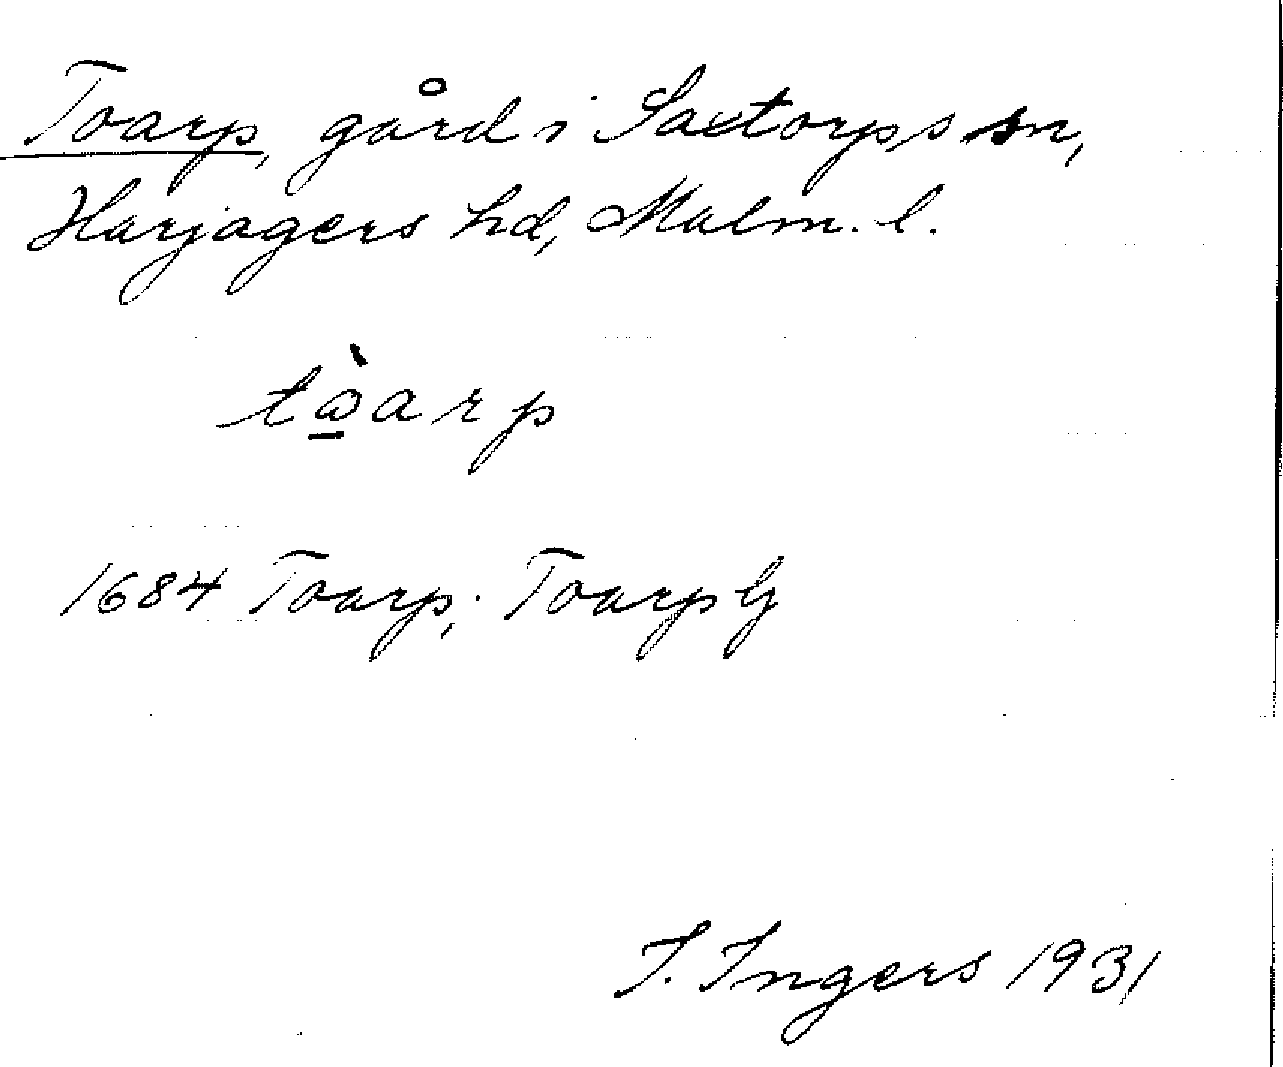 Toarp, gård i Saxtorps sn,
Harjagers hd, Malm. l.
tὼ̱arp
1684 Toarp; Toarp By
I. Ingers 1931